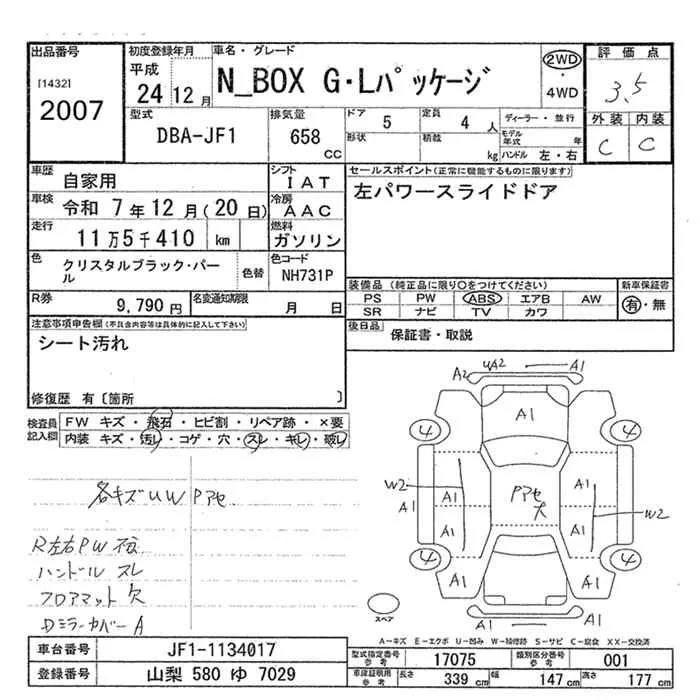 出品番号
[1432]
2007
初度登録年月
平成
24 12月
車名・グレード
N_BOX G・Lパッケージ
2WD
・
4WD
評価点
3.5
外装 内装
C C
型式
DBA-JF1
排気量
658
CC
ドア
5
定員
4 人
形状
積載
kg
ディーラー・並行
モデル年式 年
ハンドル 左・右
車歴
自家用
シフト
IAT
車検
令和 7年12月(20日)
冷房
AAC
走行
11万5千410 km
燃料
ガソリン
色
クリスタルブラック・パール
色替
色コード
NH731P
R券
9,790円
名変通知期限
月 日
セールスポイント(正常に機能するものに限ります)
左パワースライドドア
装備品(純正品に限り○をつけてください)
PS PW ABS エアB AW
SR ナビ TV カワ
新車保証書
有・無
後日品
保証書・取説
注意事項申告欄(不具合内容等は具体的に記入して下さい)
シート汚れ
修復歴 有〔箇所 〕
検査員
記入欄
FW キズ・飛石・ヒビ割・リペア跡・×要
内装 キズ・汚レ・コゲ・穴・スレ・キレ・破レ
各キズUW Pアセ
R左右PW
ハンドル スレ
フロアマット欠
Dミラーカバー A
A2 UA2 A1
A1
4 4
W2 A1 A1
A1 Pアセ大 W2
A1 A1
4 4
A1 A1
A1
スペア
A1
A-キズ E-エクボ U-凹み W-補修跡 S-サビ C-腐食 XX-交換済
車台番号
JF1-1134017
登録番号
山梨 580 ゆ 7029
型式指定番号
参考
17075
類別区分番号
参考
001
車庫証明用
参考
長さ 339 cm 幅 147 cm 高さ 177 cm